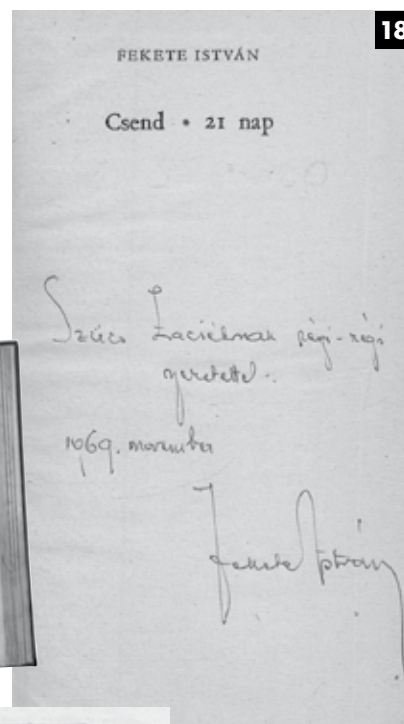 18
FEKETE ISTVÁN
Csend • 21 nap
Szűcs Laciéknak régi-régi
szeretettel.
1969. november
Fekete István